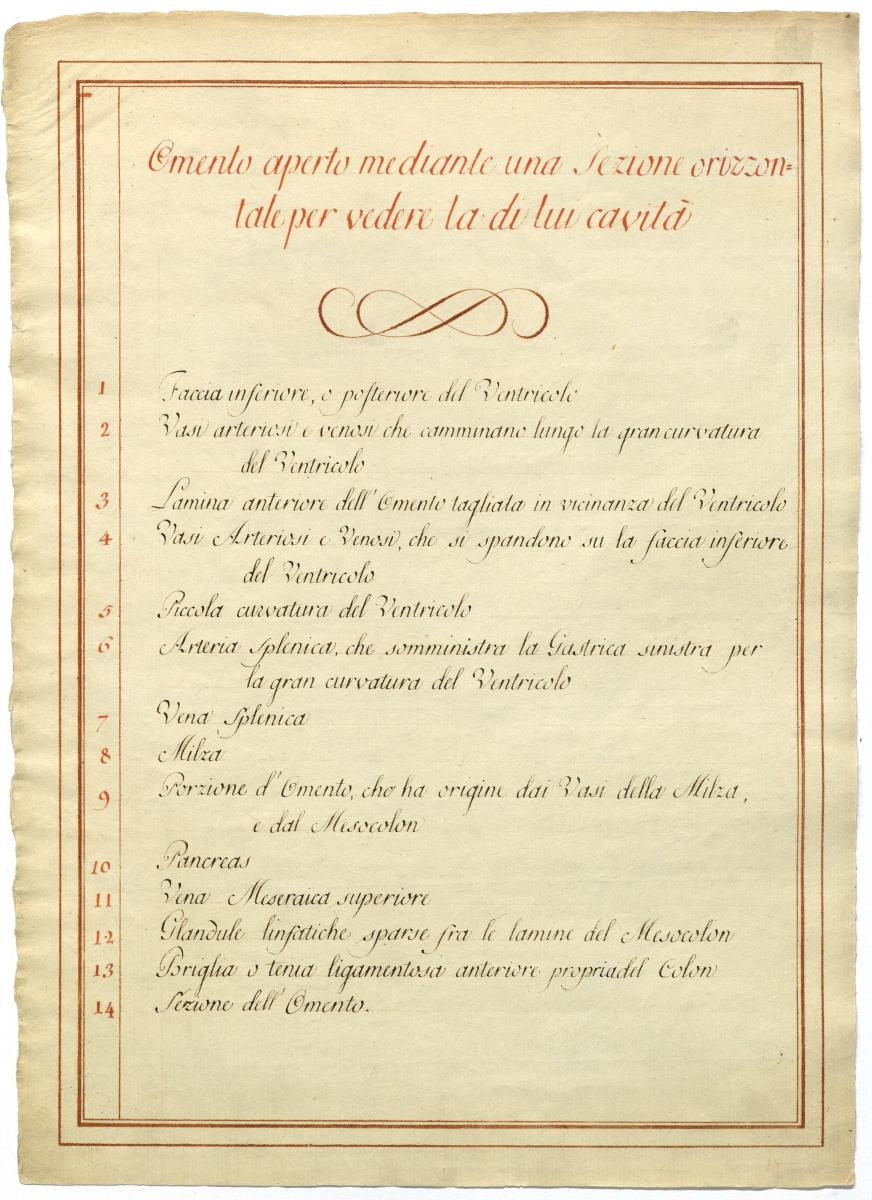 Omento aperto mediante una Sezione orizzon=
tale per vedere la di lui cavità
1 Faccia inferiore, o posteriore del Ventricolo
2 Vasi arteriosi e venosi che camminano lungo la gran curvatura
del Ventricolo
3 Lamina anteriore dell' Omento tagliata in vicinanza del Ventricolo
4 Vasi Arteriosi e Venosi, che si spandono su la faccia inferiore
del Ventricolo
5 Piccola curvatura del Ventricolo
6 Arteria Splenica, che somministra la Gastrica sinistra per
la gran curvatura del Ventricolo
7 Vena Splenica
8 Milza
9 Porzione d' Omento, che ha origine dai Vasi della Milza,
e dal Mesocolon
10 Pancreas
11 Vena Meseraica superiore
12 Glandule linfatiche sparse fra le lamine del Mesocolon
13 Briglia o tenia ligamentosa anteriore propria del Colon
14 Sezione dell' Omento.